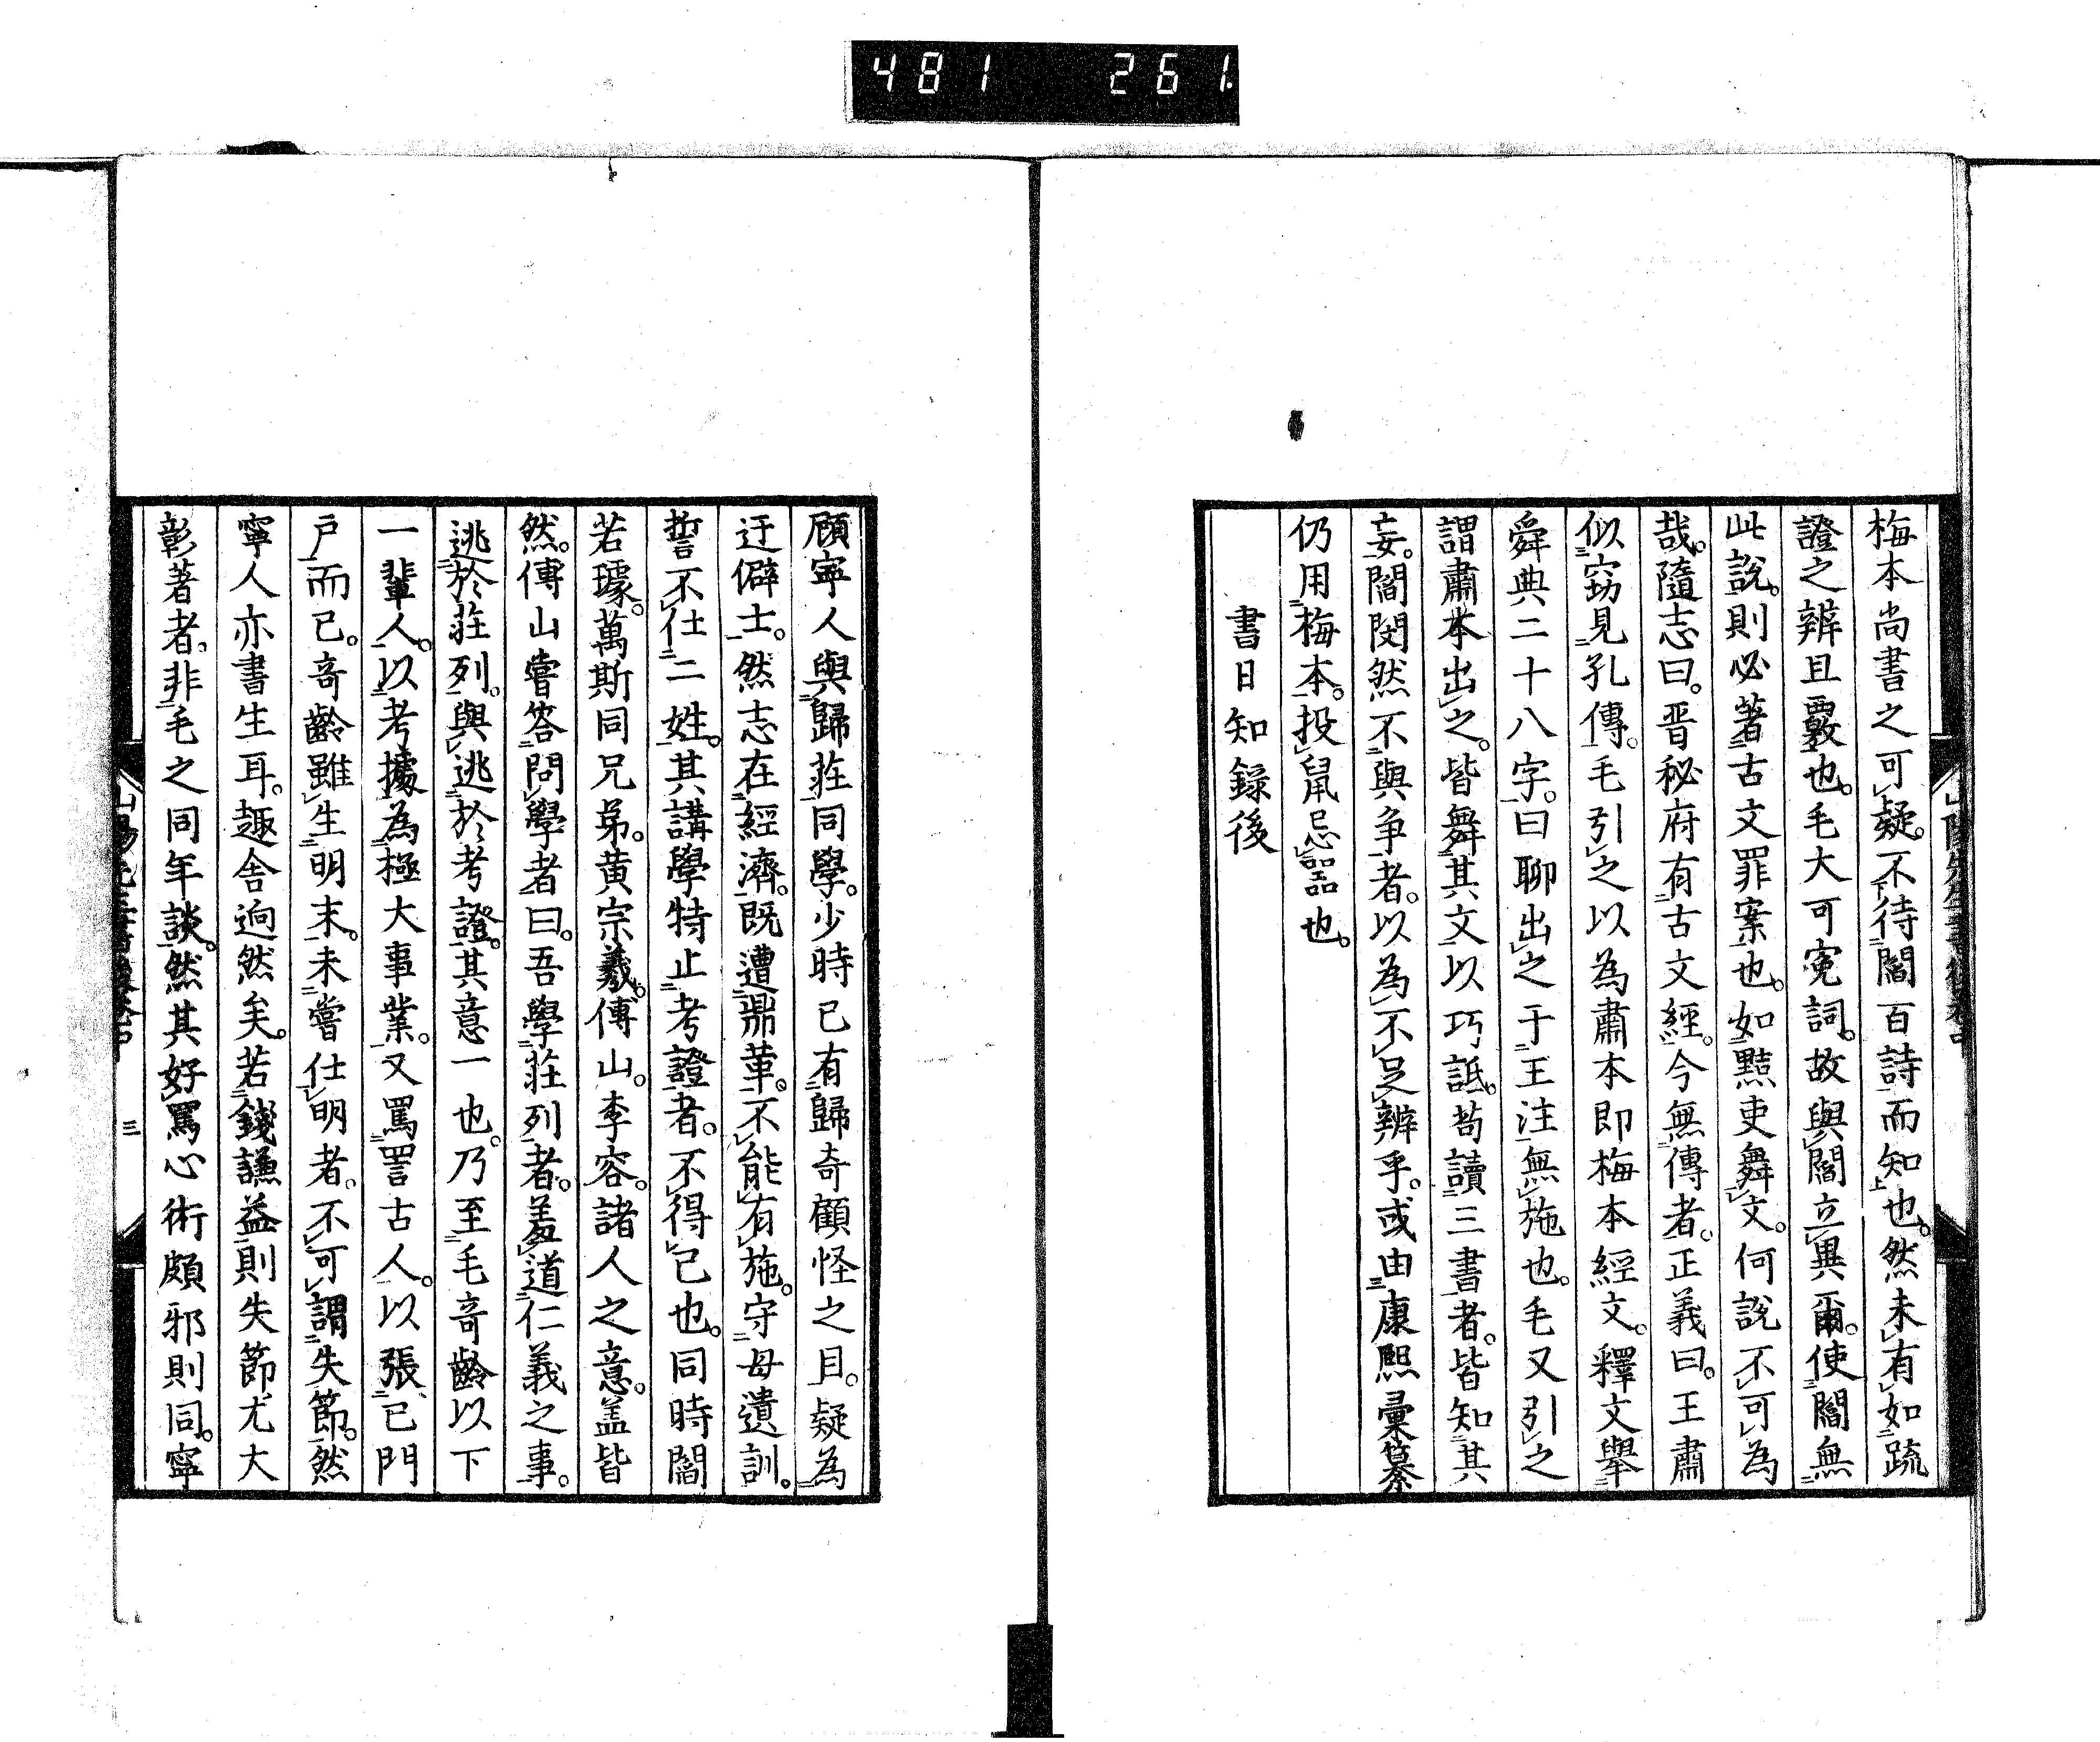 481 261.
梅本尚書之可疑。不待閻百詩而知也。然未有如疏
證之辨且覈也。毛大可寃詞。故與閻立異爾。使閻無
此說。則必著古文罪案也。如黠吏舞文。何說不可為
哉。隨志曰。晋秘府有古文經。今無傳者。正義曰。王肅
似竊見孔傳。毛引之以為肅本即梅本經文。釋文擧
舜典二十八字。曰聊出之于王注無施也。毛又引之
謂肅本出之。皆舞其文以巧詆。苟讀三書者。皆知其
妄。閻閔然不與争者。以為不足辨乎。或由康熙彙纂
仍用梅本。投鼠忌器也。
書日知録後
顧寧人與歸莊同學。少時已有歸奇顧怪之目。疑為
迂僻士。然志在經濟。既遭鼎革。不能有施。守母遺訓。
誓不仕二姓。其講學特止考證者。不得已也。同時閻
若璩。萬斯同兄弟。黄宗羲。傅山。李容。諸人之意。盖皆
然。傅山嘗答問學者曰。吾學莊列者。羞道仁義之事。
逃於莊列。與逃於考證。其意一也。乃至毛奇齡以下
一輩人。以考據為極大事業。又罵詈古人。以張己門
戸而已。奇齡雖生明末。未嘗仕明者。不可謂失節。然
寧人亦書生耳。趣舍逈然矣。若錢謙益則失節尤大
彰著者。非毛之同年談。然其好罵心術頗邪則同。寧
三